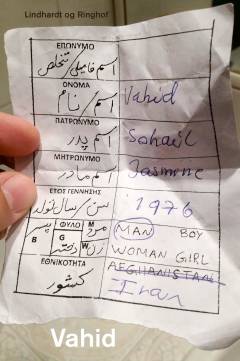 Lindhardt og Ringhof
ΕΠΩΝΥΜΟ
اسم فامیلی/تخلص
ΟΝΟΜΑ
اسم/نام Vahid
ΠΑΤΡΩΝΥΜΟ
اسم پدر Sohail
ΜΗΤΡΩΝΥΜΟ
اسم مادر Jasmine
ΕΤΟΣ ΓΕΝΝΗΣΗΣ
سن/سال تولد 1976
پسر B ΦΥΛΟ M مرد MAN BOY
دختر G W زن WOMAN GIRL
ΕΘΝΙΚΟΤΗΤΑ AFGHANISTAN
کشور Iran
Vahid